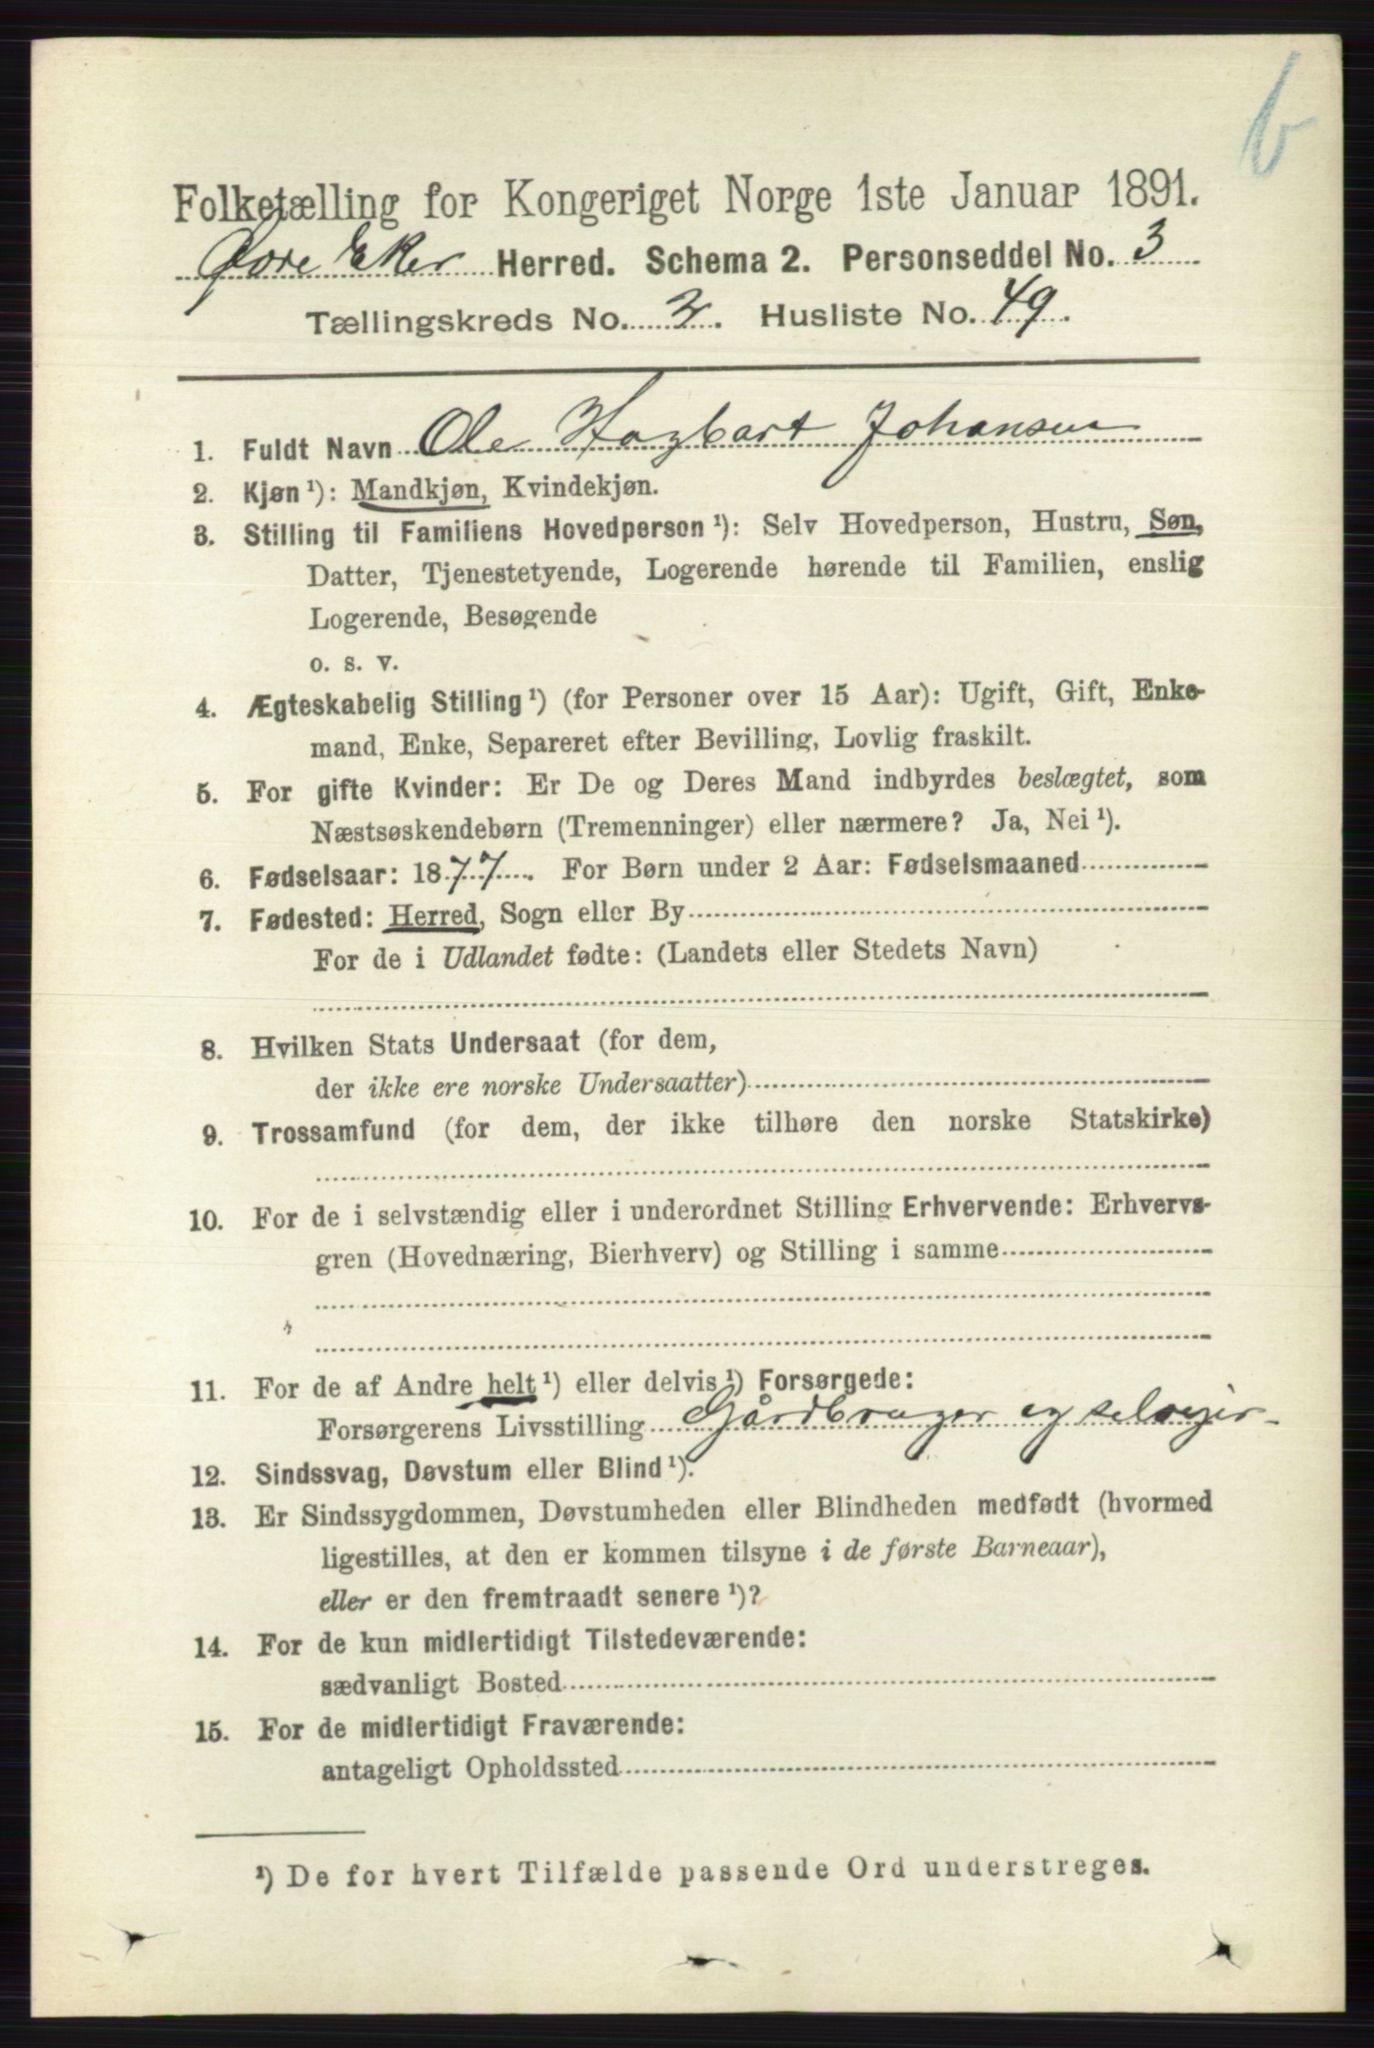 b
Folketælling for Kongeriget Norge 1ste Januar 1891.
Øvre Eker Herred. Schema 2. Personseddel No. 3
Tællingskreds No. 3. Husliste No. 49.
1. Fuldt Navn Ole Hagbart Johansen
2. Kjøn ¹): Mandkjøn, Kvindekjøn.
3. Stilling til Familiens Hovedperson ¹): Selv Hovedperson, Hustru, Søn,
Datter, Tjenestetyende, Logerende hørende til Familien, enslig
Logerende, Besøgende
o. s. v.
4. Ægteskabelig Stilling ¹) (for Personer over 15 Aar): Ugift, Gift, Enke-
mand, Enke, Separeret efter Bevilling, Lovlig fraskilt.
5. For gifte Kvinder: Er De og Deres Mand indbyrdes beslægtet, som
Næstsøskendebørn (Tremenninger) eller nærmere? Ja, Nei ¹).
6. Fødselsaar: 1877. For Børn under 2 Aar: Fødselsmaaned
7. Fødested: Herred, Sogn eller By
For de i Udlandet fødte: (Landets eller Stedets Navn)
8. Hvilken Stats Undersaat (for dem,
der ikke ere norske Undersaatter)
9. Trossamfund (for dem, der ikke tilhøre den norske Statskirke)
10. For de i selvstændig eller i underordnet Stilling Erhvervende: Erhvervs-
gren (Hovednæring, Bierhverv) og Stilling i samme
11. For de af Andre helt ¹) eller delvis ¹) Forsørgede:
Forsørgerens Livsstilling Gårdbruger og selveier
12. Sindssvag, Døvstum eller Blind ¹).
13. Er Sindssygdommen, Døvstumheden eller Blindheden medfødt (hvormed
ligestilles, at den er kommen tilsyne i de første Barneaar),
eller er den fremtraadt senere ¹)?
14. For de kun midlertidigt Tilstedeværende:
sædvanligt Bosted
15. For de midlertidigt Fraværende:
antageligt Opholdssted
¹) De for hvert Tilfælde passende Ord understreges.